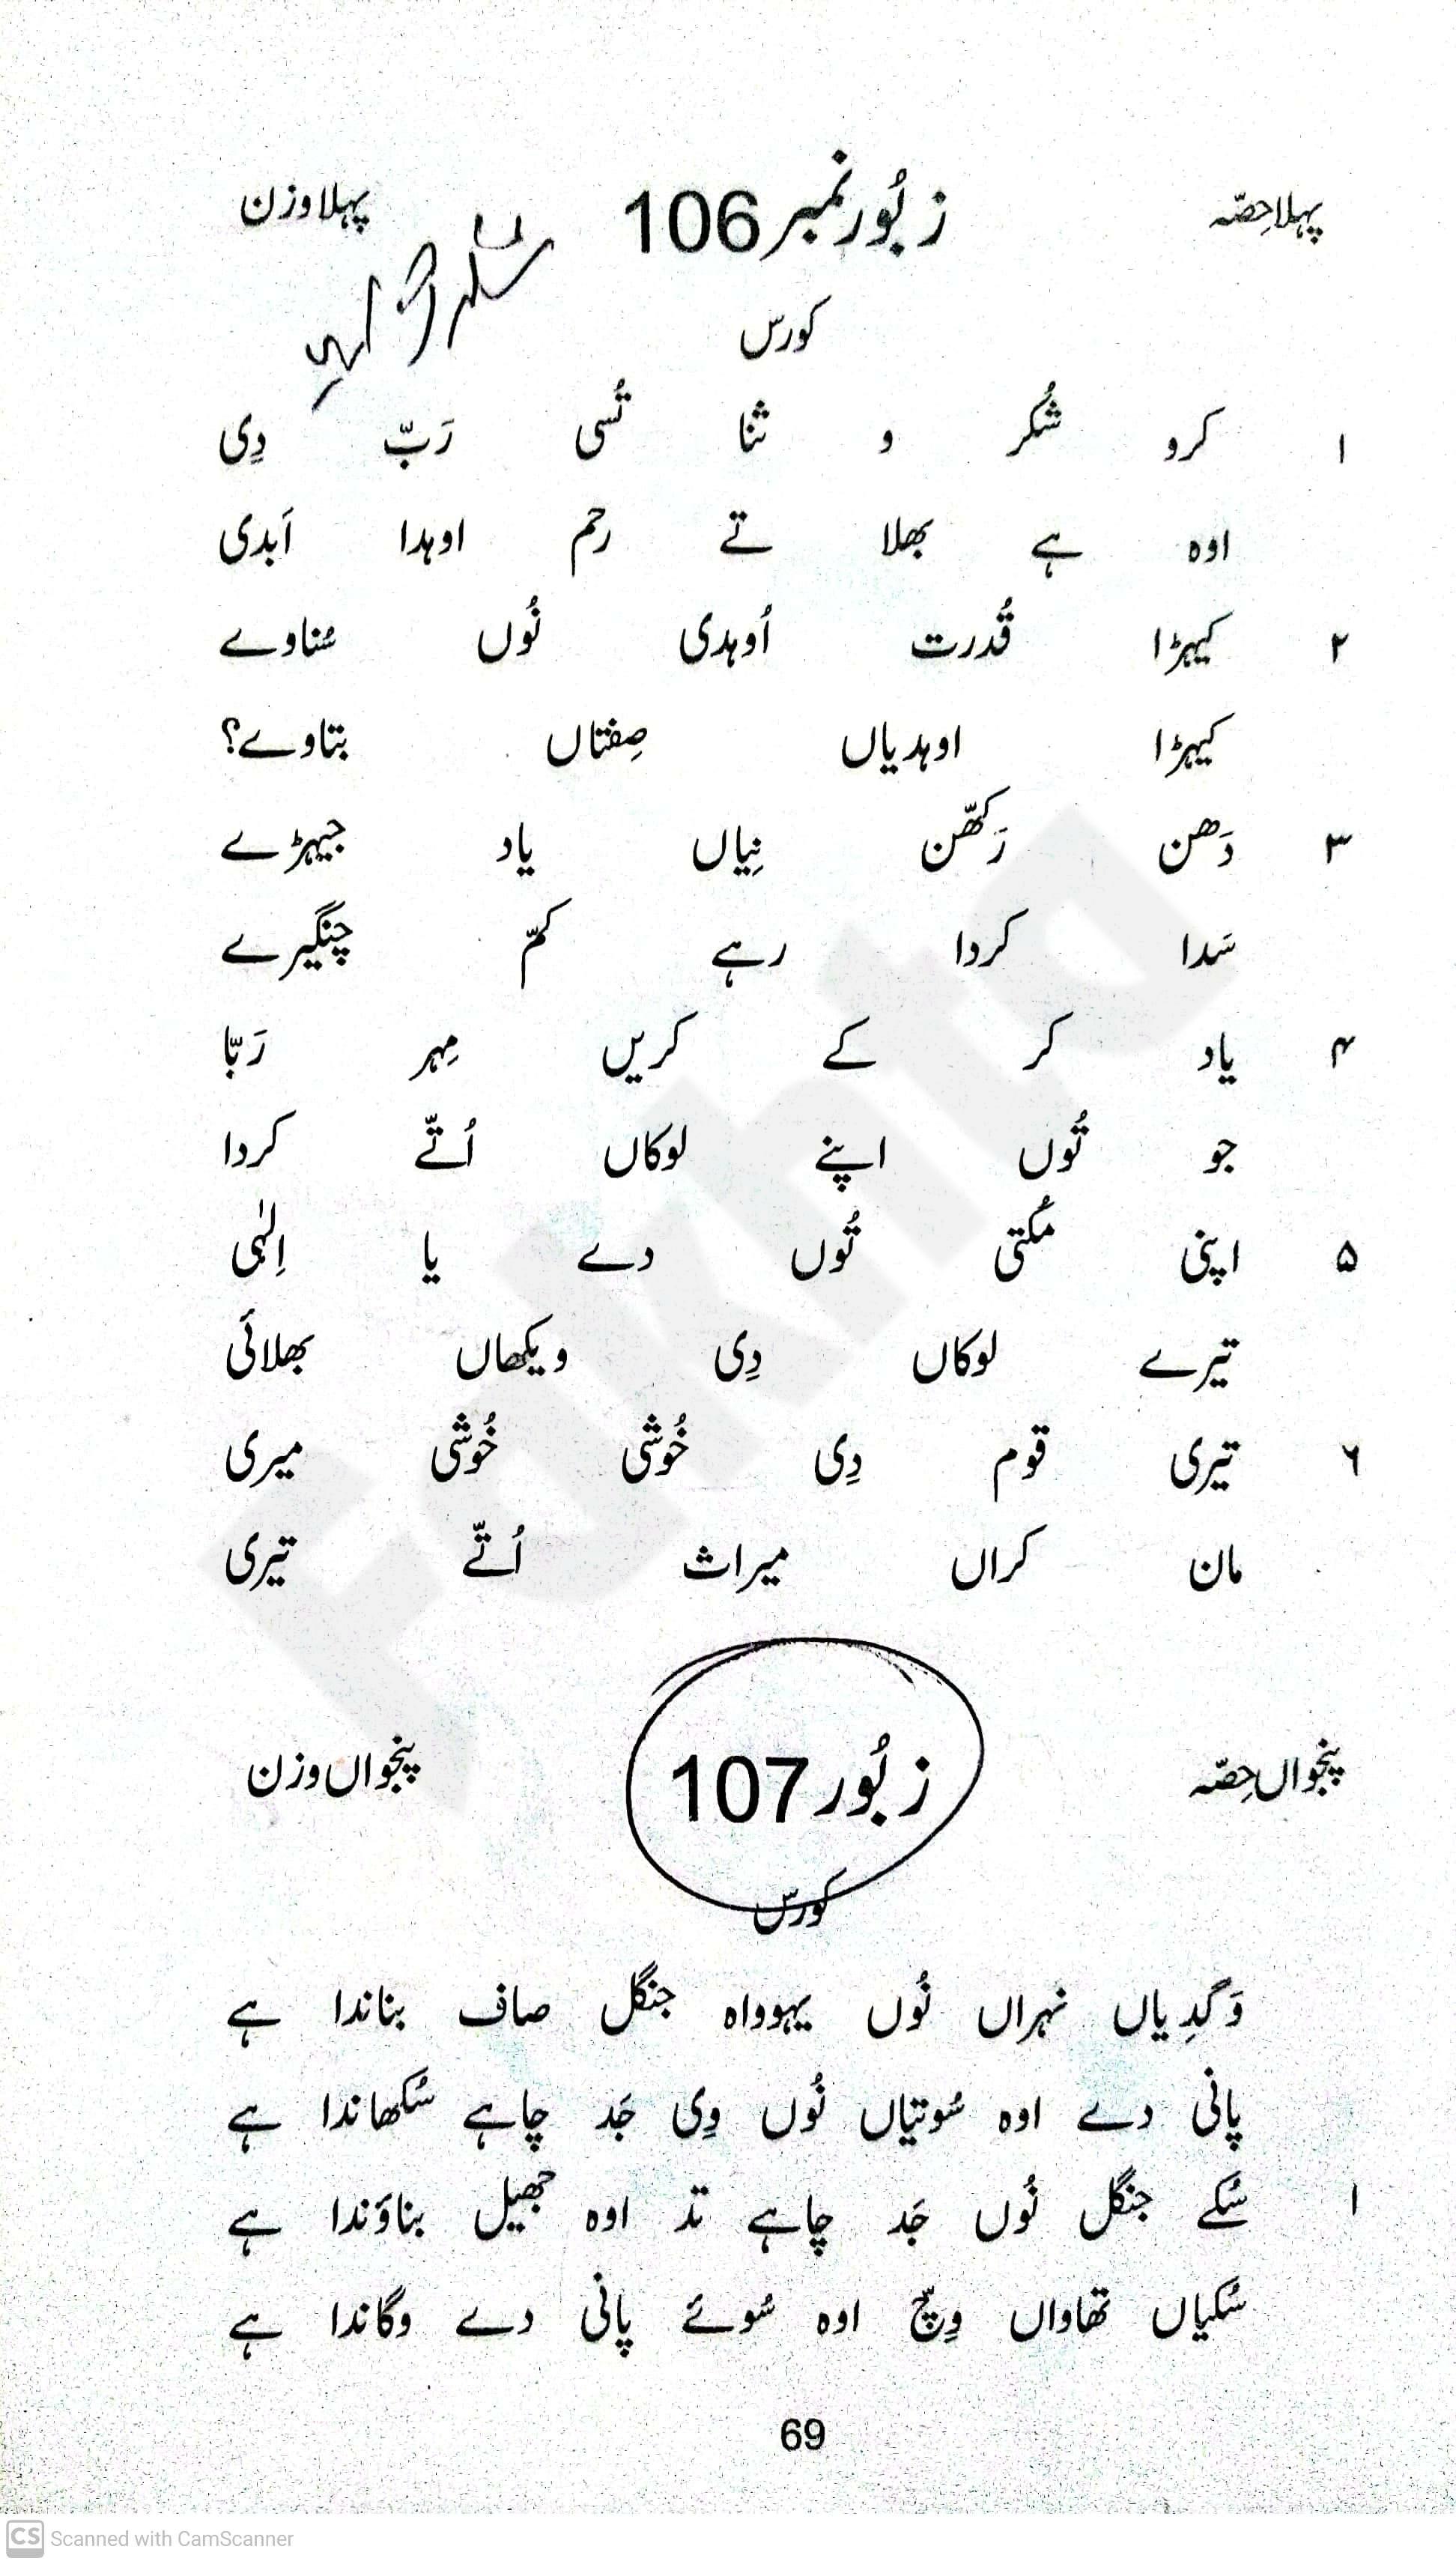 پہلا حِصّہ زبُور نمبر 106 پہلا وزن
کورس
۱ کرو شُکر و ثنا تُسی رَبّ دِی
اوہ ہے بھلا تے رحم اوہدا اَبدی
۲ کیہڑا قُدرت اُوہدی نُوں سُناوے
کیہڑا اوہدیاں صِفتاں بتاوے؟
۳ دَھن رَکھّن نِیاں یاد جیہڑے
سَدا کردا رہے کمّ چنگیرے
۴ یاد کر کے کریں مِہر رَبّا
جو تُوں اپنے لوکاں اُتّے کردا
۵ اپنی مُکتی تُوں دے یا اِلٰہی
تیرے لوکاں دِی ویکھاں بھلائی
۶ تیری قوم دِی خُوشی خُوشی میری
مان کراں میراث اُتّے تیری
پنجواں حِصّہ زبُور 107 پنجواں وزن
کورس
وَگدِیاں نہراں نُوں یہوواہ جنگل صاف بناندا ہے
پانی دے اوہ سُوتیاں نُوں وِی جَد چاہے سُکھاندا ہے
۱ سُکے جنگل نُوں جَد چاہے تد اوہ جھیل بناوَندا ہے
سُکیاں تھاواں وِچّ اوہ سُوئے پانی دے وگاندا ہے
69
Fakhta
CS Scanned with CamScanner